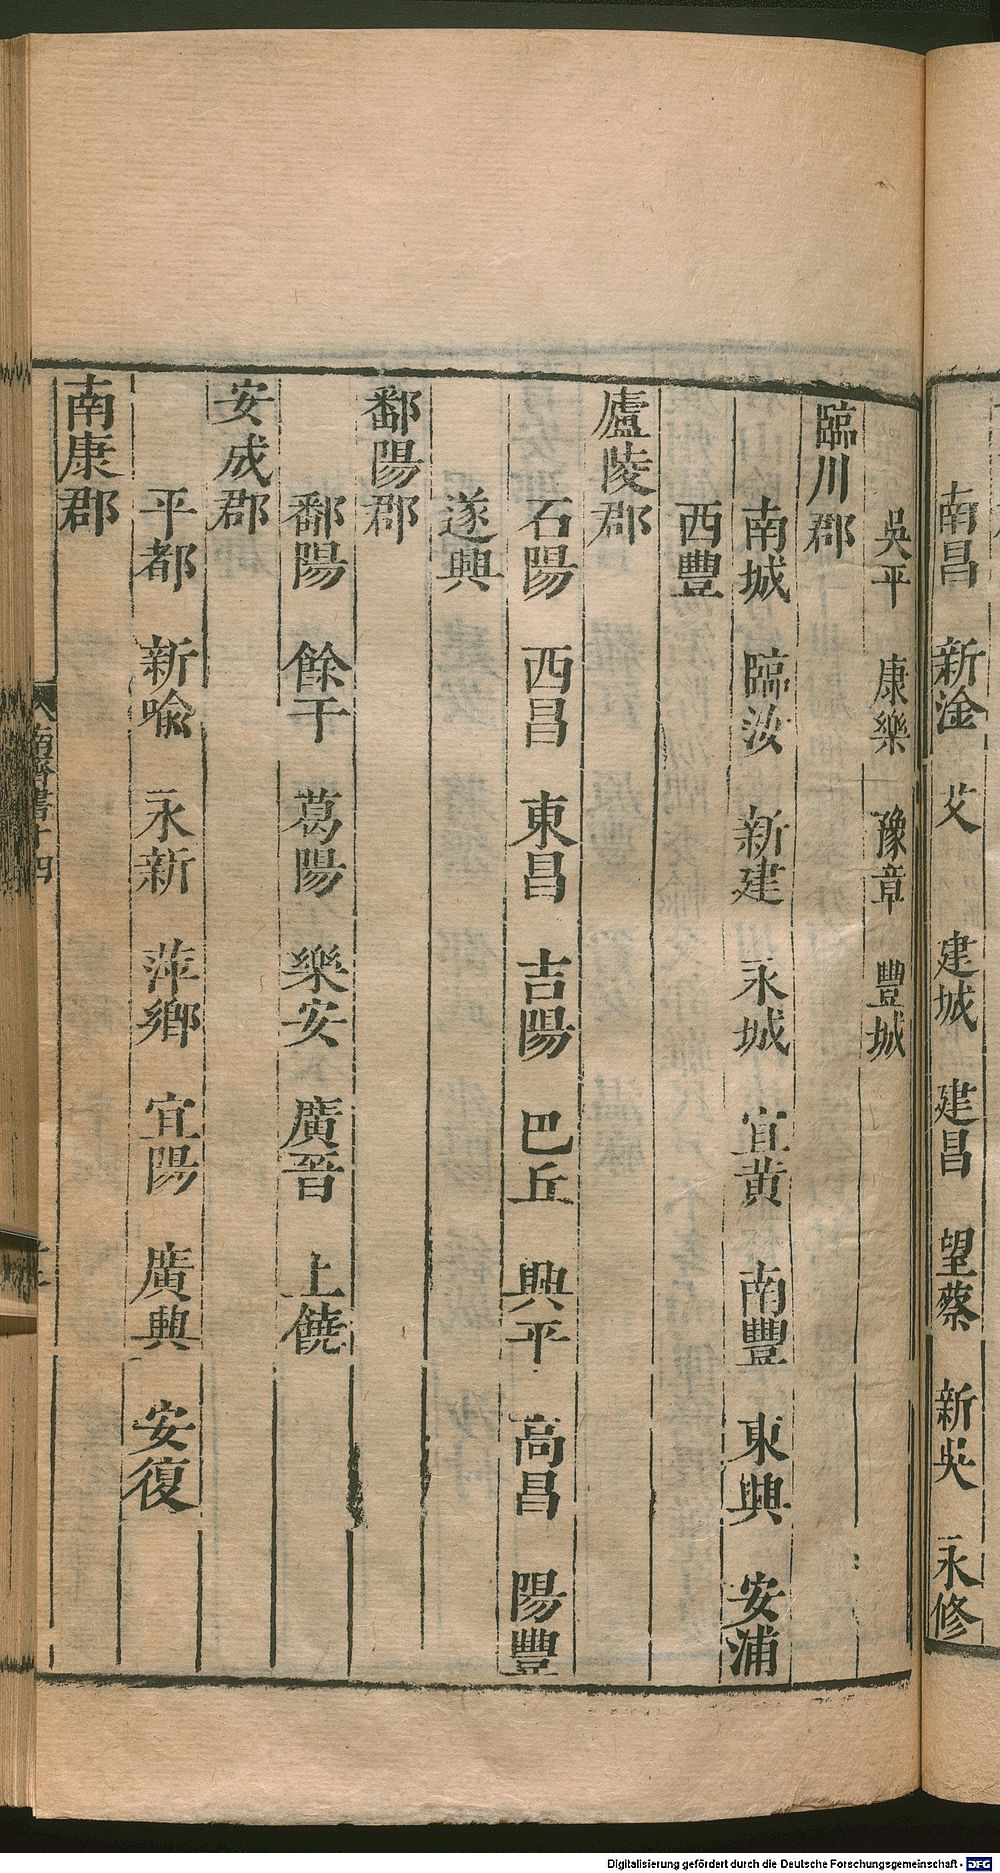 南昌 新淦 艾 建城 建昌 望蔡 新吳 永修
吳平 康樂 豫章 豐城
臨川郡
南城 臨汝 新建 永城 宜黃 南豐 東興 安浦
西豐
廬陵郡
石陽 西昌 東昌 吉陽 巴丘 興平 高昌 陽豐
遂興
鄱陽郡
鄱陽 餘干 葛陽 樂安 廣晉 上饒
安成郡
平都 新喻 永新 萍鄉 宜陽 廣興 安復
南康郡
南齊書十四
Digitalisierung gefördert durch die Deutsche Forschungsgemeinschaft - DFG